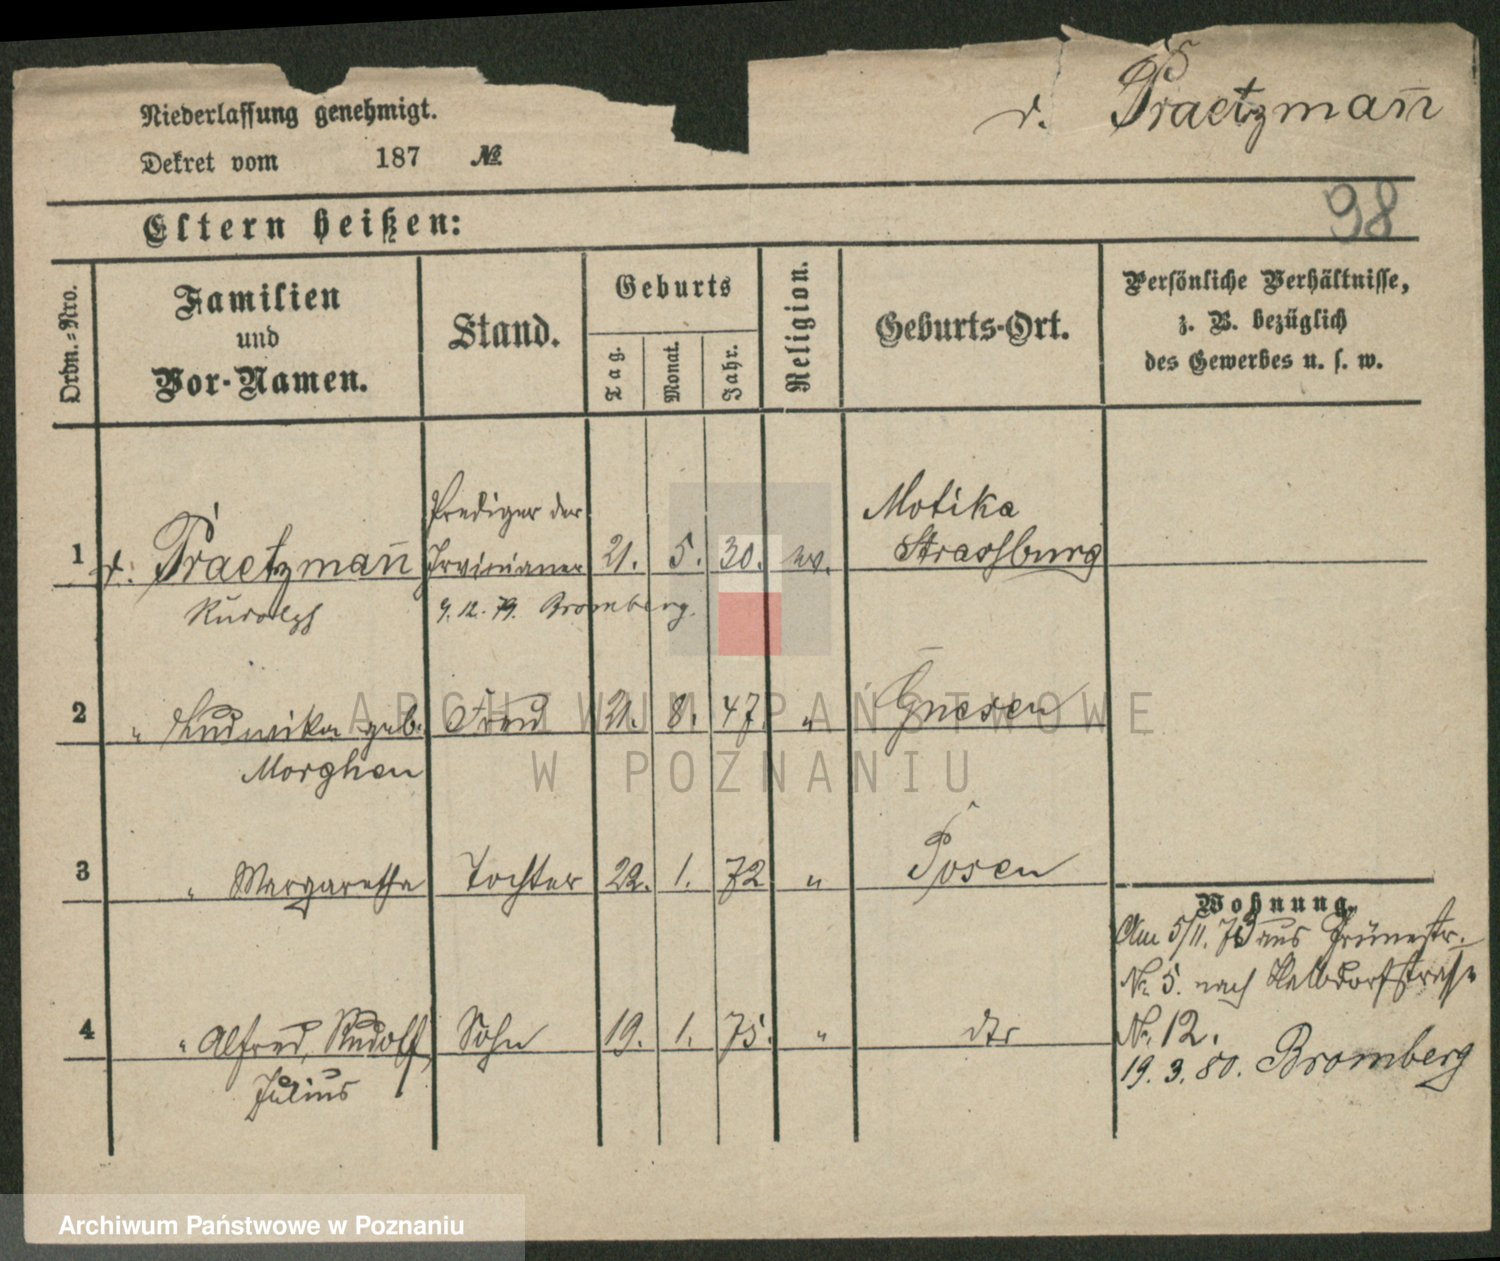 Niederlassung genehmigt.
Dekret vom 187 №
v. Praetzmann
98
Eltern heißen:
Ordn.-Nro.
Familien
und
Vor-Namen.
Stand.
Geburts
Tag.
Monat.
Jahr.
Religion.
Geburts-Ort.
Persönliche Verhältnisse,
z. B. bezüglich
des Gewerbes u. s. w.
1 v. Praetzmann
Rudolph
Prediger der
Irvinianer
9.12.79. Bromberg.
21. 5. 30. ev.
Motika
Strassburg
2 " Ludwika geb.
Morghen
Frau 21. 8. 47. " Gnesen
3 " Margaretha Tochter 22. 1. 72 " Posen
4 " Alfred, Rudolf
Julius
Sohn 19. 1. 75. " dto
Wohnung.
Am 5/11. 75 aus Grünestr.
№ 5. nach Halbdorfstraße
№ 12.
19. 3. 80. Bromberg
ARCHIWUM PAŃSTWOWE
W POZNANIU
Archiwum Państwowe w Poznaniu